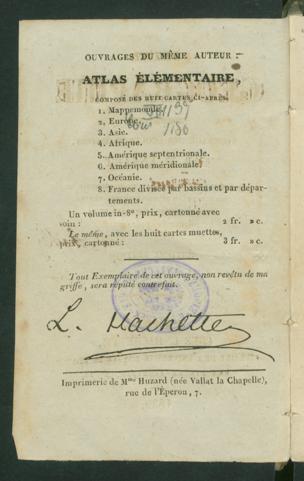 OUVRAGES DU MÊME AUTEUR :
ATLAS ÉLÉMENTAIRE,
COMPOSÉ DES HUIT CARTES CI-APRÈS.
1. Mappemonde.
2. Europe.
3. Asie.
4. Afrique.
5. Amérique septentrionale.
6. Amérique méridionale.
7. Océanie.
8. France divisée par bassins et par dépar-
tements.
Un volume in-8°, prix, cartonné avec
soin : 2 fr. »c.
Le même, avec les huit cartes muettes,
prix, cartonné : 3 fr. »c.
Tout Exemplaire de cet ouvrage, non revêtu de ma
griffe, sera réputé contrefait.
L. Hachette
Imprimerie de Mme Huzard (née Vallat la Chapelle),
rue de l'Éperon, 7.